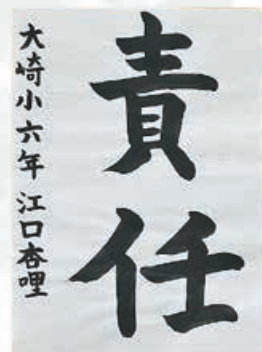 責任
大崎小六年 江口杏哩